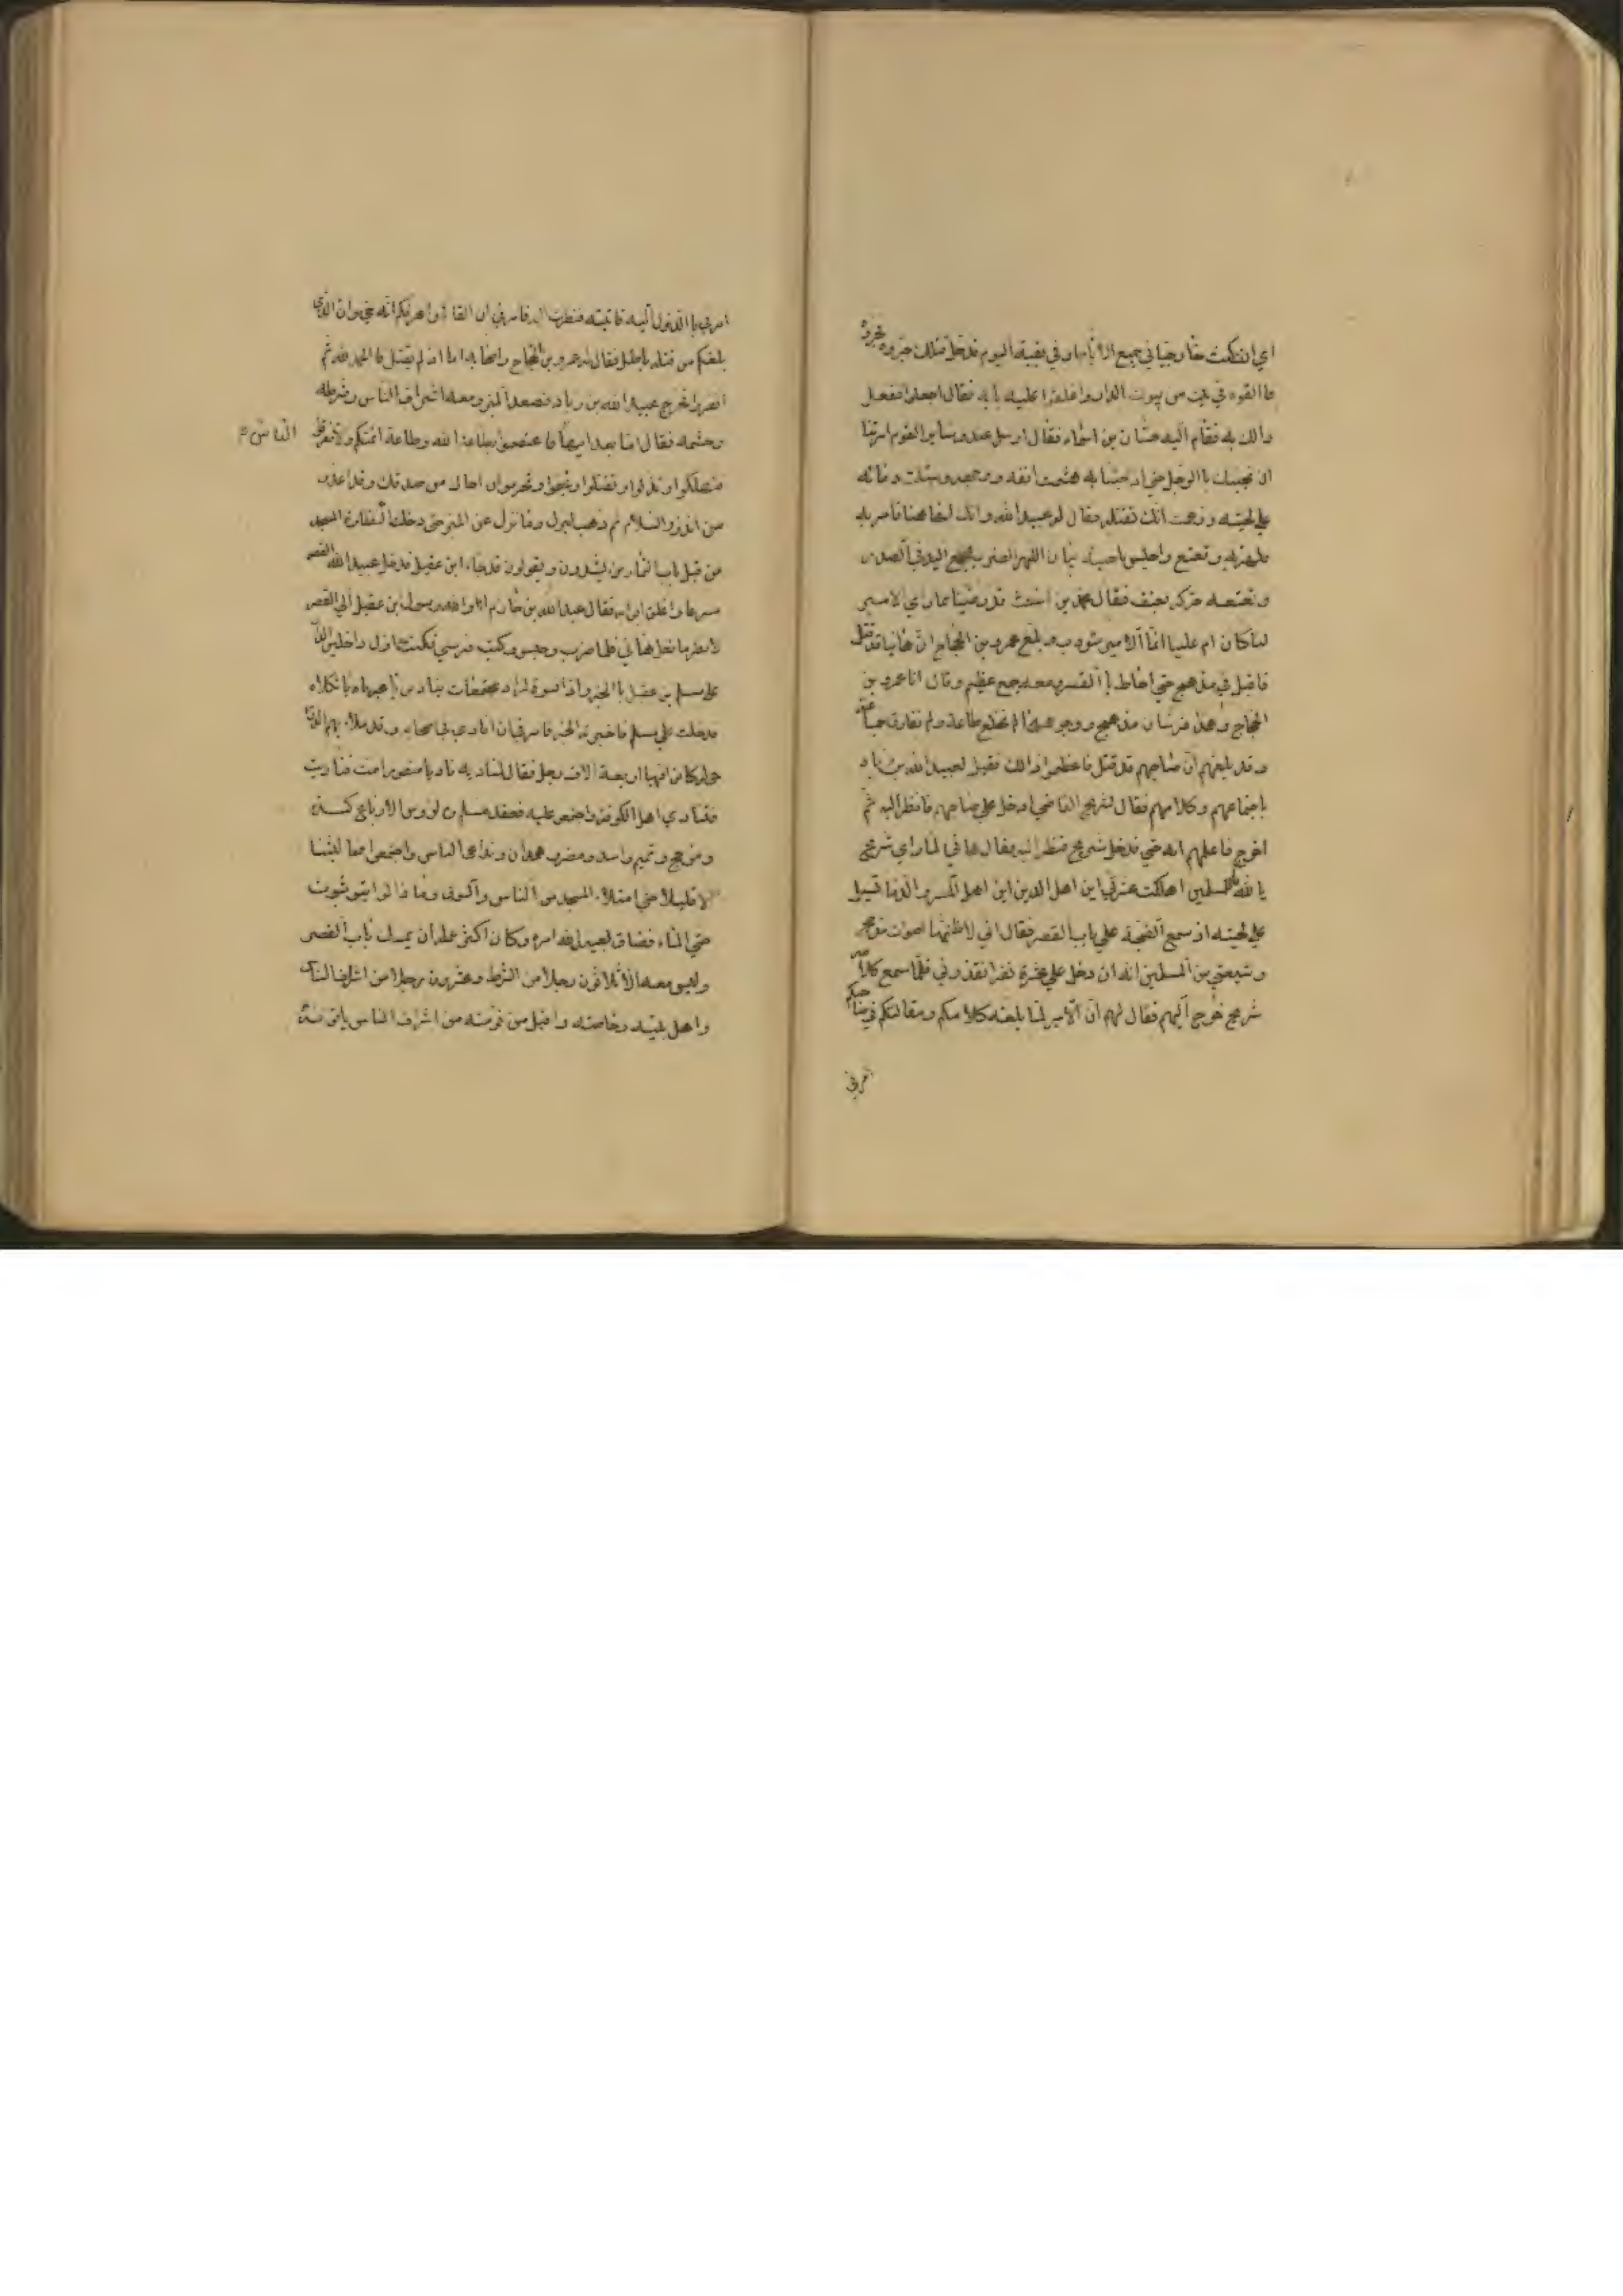 اي انت كنت خارجيا في جميع الأيام وفي بقية اليوم قد حل قتلك جروه فجروه
فالقوه في بيت من بيوت الدار واغلقوا عليه بابه فقال اجعلوا ففعل
ذالك به فقام اليه حسان بن اسماء فقال ارسل عدو ساير القوم امرتنا
ان نجيئك باالرجل حتي اذ جئنا به هشمت انفه ووجهه وسيلت دمائه
علي لحيته وزعمت انك تقتله فقال له عبيد الله وانك لها هنا فامر به
فلهز به وتعتع واجلس ناحية بيان اللهز الضرب بجمع اليد في الصدر
وتعتعه حركه بعنف فقال محمد بن اشعث قد رضينا بما راي الامير
لنا كان ام علينا انما الامير مودب وبلغ عمرو بن الحجاج ان هانيا قد قتل
فاقبل في مذحج حتي احاط باالقصر ومعه جمع عظيم وقال انا عمرو بن
الحجاج وهذه فرسان مذحج ووجوهها لم نخلع طاعة ولم نفارق جماعة
وقد بلغهم ان صاحبهم قد قتل فاعظموا ذالك فقيل لعبيد الله بن زياد
باجتماعهم وكلامهم فقال لشريح القاضي ادخل علي صاحبهم فانظر اليه ثم
اخرج فاعلمهم انه حي فدخل شريح فنظر اليه فقال هاني لما راي شريح
يا لله يا للمسلمين اهلكت عشيرتي اين اهل الدين اين اهل المصر والدما تسيل
علي لحيته اذ سمع الضجة علي باب القصر فقال اني لاظنها اصوات مذحج
وشيعتي من المسلمين انه ان دخل علي عشرة نفر انقذوني فلما سمع كلامه
شريح خرج اليهم فقال لهم ان الامير لما بلغه كلامكم ومقالتكم في صاحبكم
امرني
امرني باالدخول اليه فاتيته فنظرت اليه فامرني ان القاكم واعرفكم انه حي وان الذي
بلغكم من قتله باطل فقال له عمرو بن الحجاج واصحابه اما اذ لم يقتل فالحمد لله ثم
انصرفوا فخرج عبيد الله بن زياد فصعد المنبر ومعه اشراف الناس وشرطه
وحشمه فقال اما بعد ايها فاعتصموا بطاعة الله وطاعة ائمتكم ولا تفرقوا
الناس
فتهلكوا وتذلوا وتقتلوا وتجفوا وتحرموا ان اخاك من صدقك وقد اعذر
من انذر والسلام ثم ذهب لينزل وما نزل عن المنبر حتي دخلت النظارة المسجد
من قبل باب التمارين يشتدون ويقولون قد جاء ابن عقيل فدخل عبيد الله القصر
مسرعا واغلق ابوابه فقال عبد الله بن خازم انا والله رسول ابن عقيل الي القصر
لانظر ما فعل هاني فلما ضرب وحبس ركبت فرسي فكنت اول داخل الدار
علي مسلم بن عقيل باالخبر واذا نسوة لمراد مجتمعات ينادين يا عبرتاه يا ثكلاه
فدخلت علي مسلم فاخبرته الخبر فامرني ان انادي في اصحابه وقد ملاء بهم الدور
حوله كانوا فيها اربعة الاف رجل فقال لمناديه ناد يا منصور امت فناديت
فتنادي اهل الكوفة واجتمعوا عليه فعقد مسلم لرؤس الارباع كندة
ومذحج وتميم واسد ومضر وهمدان وتداعي الناس واجتمعوا فما لبثنا
الا قليلا حتي امتلاء المسجد من الناس والسوق وما زالوا يتوثبون
حتي المساء فضاق لعبيد الله امره وكان اكثر عمله ان يمسك باب القصر
وليس معه الا ثلاثون رجلا من الشرط وعشرون رجلا من اشراف الناس
واهل بيته وخاصته واقبل من ناي عنه من اشراف الناس ياتونه